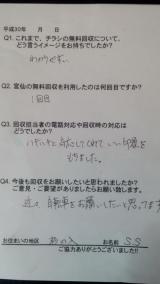 平成30年　月　日
Q1. これまで、チラシの無料回収について、
どう言うイメージをお持ちでしたか?
わかりやすい。
Q2. 宮仙の無料回収を利用したのは何回目ですか?
1回目
Q3. 回収担当者の電話対応や回収時の対応は
どうでしたか?
ハキハキと対応してくれて、いい印象を
もちました。
Q4. 今後も回収をお願いしたいと思われましたか?
ご意見・ご要望がありましたらお願い致します。
自転車をお願いしたいと思ってます
お住まいの地区
お名前 S.S
ご協力ありがとうございました!